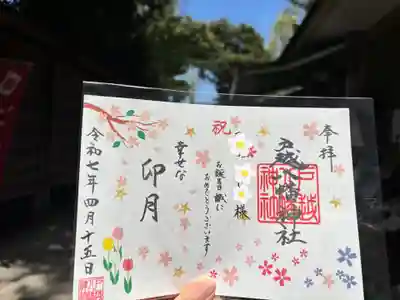 奉拝
戸越八幡神社
戸越
神社
祝
様
お誕生日誠に
おめでとうございます
幸せな
卯月
令和七年四月十五日